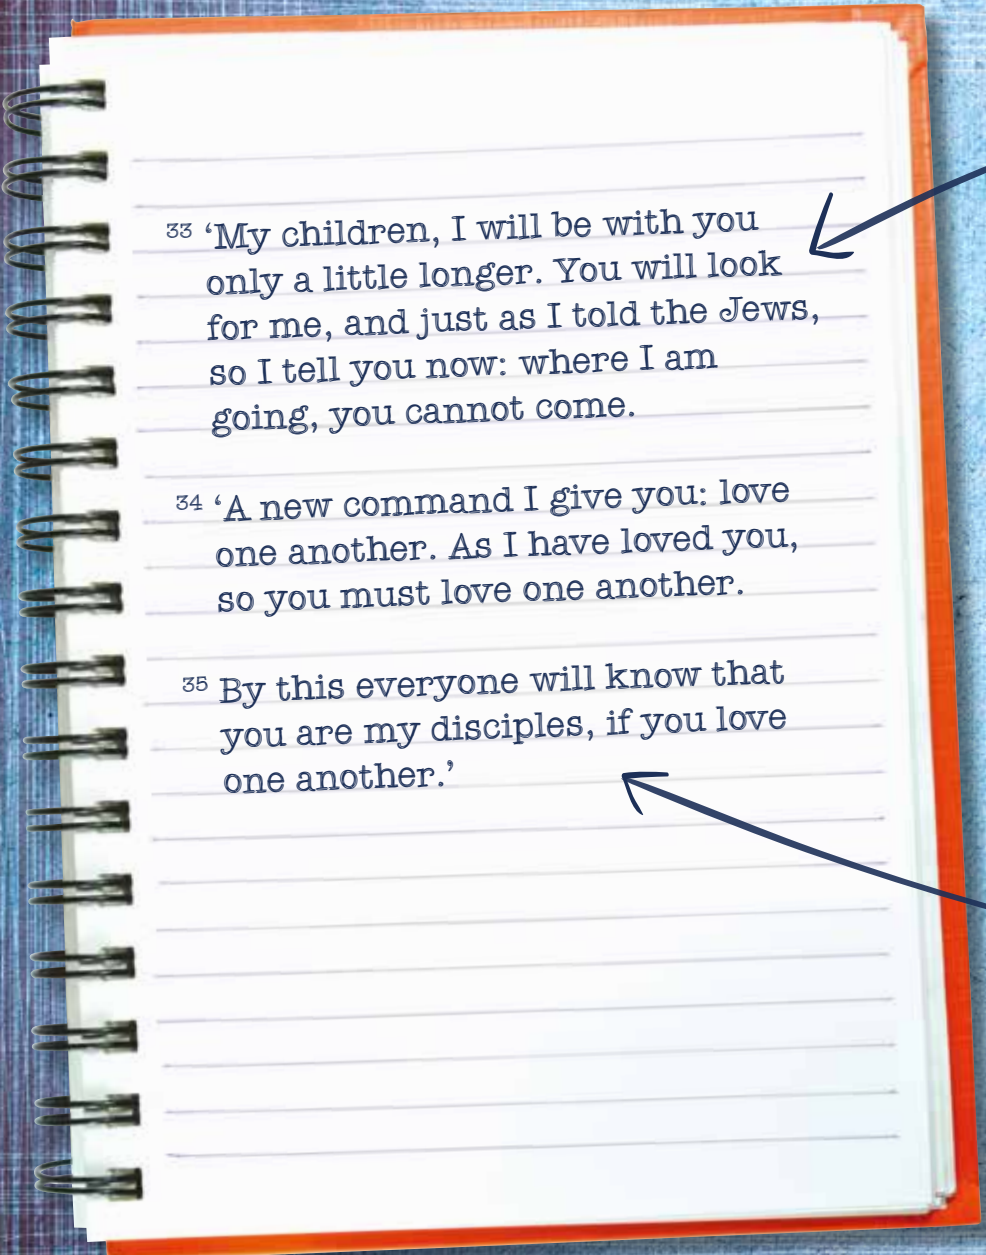 33 ‘My children, I will be with you
only a little longer. You will look
for me, and just as I told the Jews,
so I tell you now: where I am
going, you cannot come.
34 ‘A new command I give you: love
one another. As I have loved you,
so you must love one another.
35 By this everyone will know that
you are my disciples, if you love
one another.’